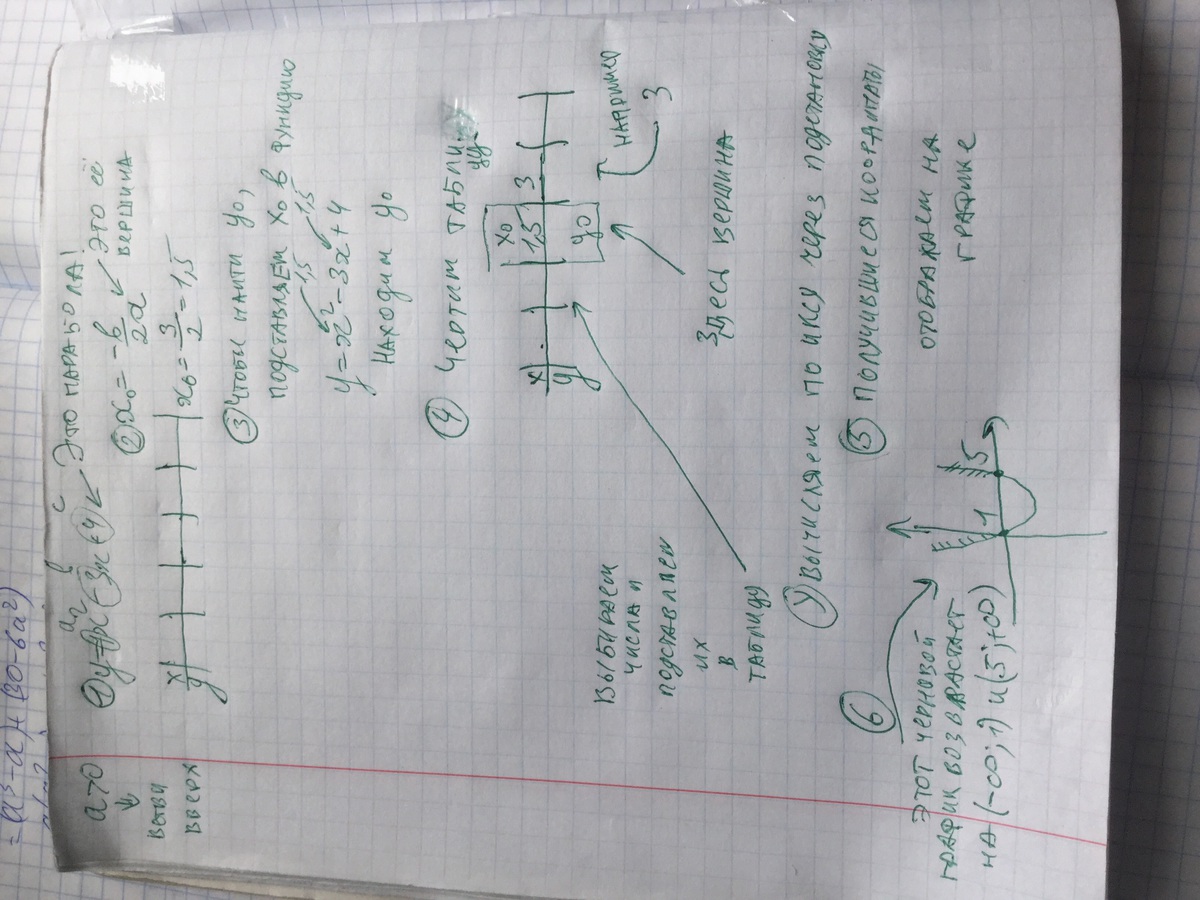 = (a³-a)+(30-6a²)
a>0
ветви
вверх
a b c
① y=x²(-3x(+4) ЭТО ПАРАБОЛА!
② x₀=-b/2a ЭТО её
ВЕРШИНА
x
y
x₀=3/2=1,5
③ ЧТОБЫ НАЙТИ y₀,
ПОДСТАВЛЯЕМ X₀ В ФУНКЦИЮ
1,5 1,5
y=x²-3x+4
НАХОДИМ y₀
④ ЧЕРТИМ ТАБЛИ
ЦУ
x₀
x 1,5 3
y y₀
НАПРИМЕР
3
ЗДЕСЬ ВЕРШИНА
ВЫБИРАЕМ
ЧИСЛА И
ПОДСТАВЛЯЕМ
ИХ
В
ТАБЛИЦУ
y ВЫЧИСЛЯЕМ ПО ИКСУ ЧЕРЕЗ ПОДСТАНОВКУ
⑤ ПОЛУЧИВШИЕСЯ КООРДИНАТЫ
ОТОБРАЖАЕМ НА
ГРАФИКЕ
⑥
ЭТОТ ЧЕРНОВОЙ
ГРАФИК ВОЗВРАСТАЕТ
НА (-∞;1) И (5;+∞)
1 5